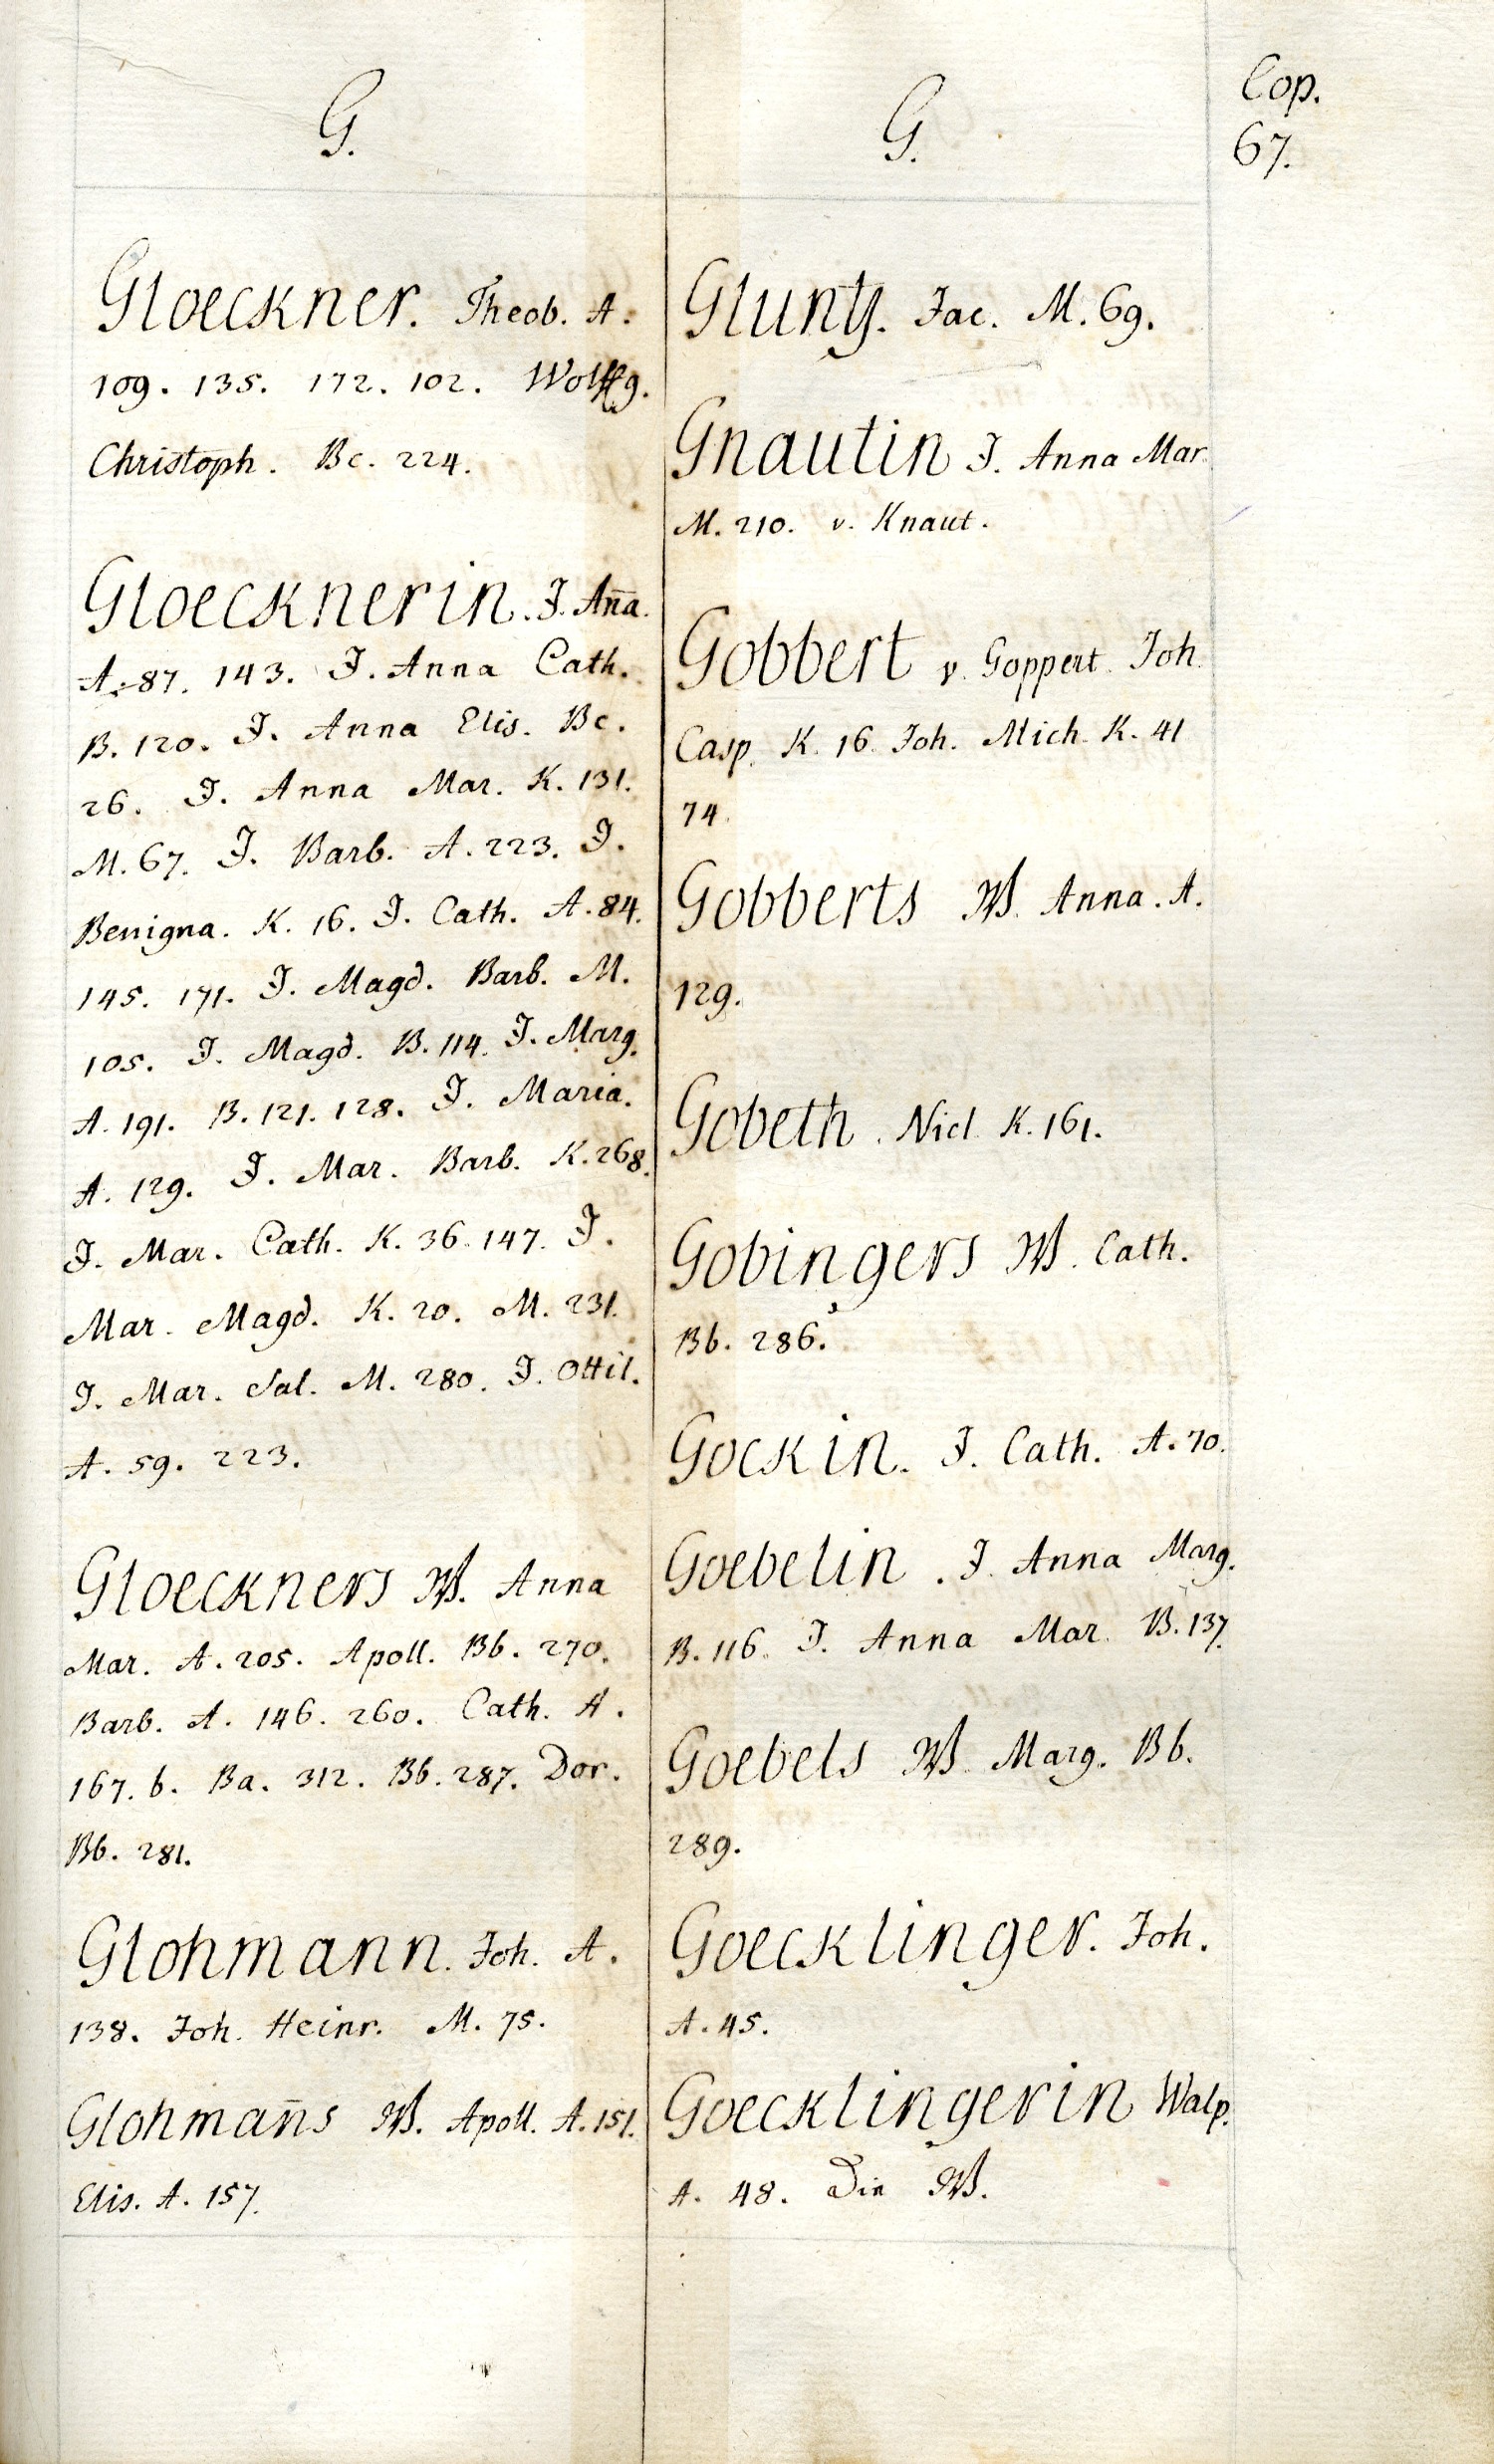 G.
Gloeckner. Theob. A.
109. 135. 172. 102. Wolffg.
Christoph. Bc. 224.
Gloecknerin. J. Aña.
A. 87. 143. J. Anna Cath.
B. 120. J. Anna Elis. Bc.
26. J. Anna Mar. K. 131.
M. 67. J. Barb. A. 223. J.
Benigna. K. 16. J. Cath. A. 84.
145. 171. J. Magd. Barb. M.
105. J. Magd. B. 114. J. Marg.
A. 191. B. 121. 128. J. Maria.
A. 129. J. Mar. Barb. K. 268.
J. Mar. Cath. K. 36. 147. J.
Mar. Magd. K. 20. M. 231.
J. Mar. Sal. M. 280. J. Ottil.
A. 59. 223.
Gloeckners W. Anna
Mar. A. 205. Apoll. Bb. 270.
Barb. A. 146. 260. Cath. A.
167. b. Ba. 312. Bb. 287. Dor.
Bb. 281.
Glohmann. Joh. A.
138. Joh. Heinr. M. 75.
Glohmañs W. Apoll. A. 151.
Elis. A. 157.
G.
Gluntz. Jac. M. 69.
Gnautin J. Anna Mar.
M. 210. v. Knaut.
Gobbert v. Goppert. Joh.
Casp. K. 16. Joh. Mich. K. 41
74.
Gobberts W. Anna. A.
129.
Gobeth. Nicl. K. 161.
Gobingers W. Cath.
Bb. 286.
Gockin. J. Cath. A. 70.
Goebelin. J. Anna Marg.
B. 116. J. Anna Mar. B. 137.
Goebels W. Marg. Bb.
289.
Goecklinger. Joh.
A. 45.
Goecklingerin Walp.
A. 48. Die W.
Cop.
67.